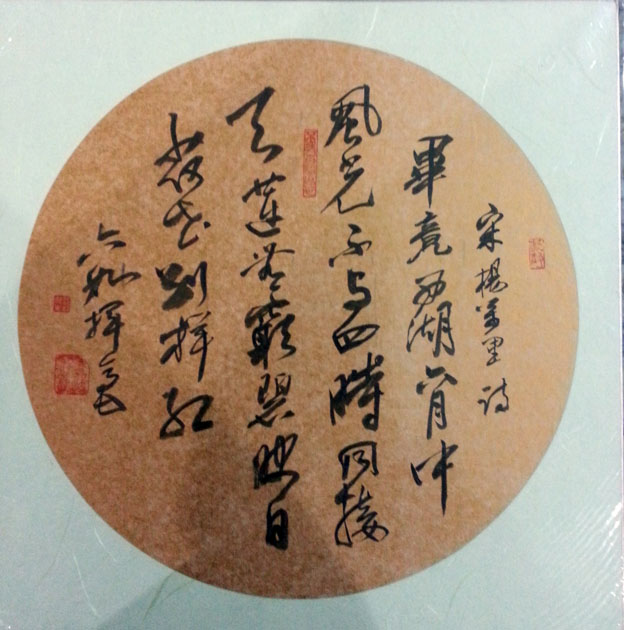 宋楊萬里詩
畢竟西湖六月中
風光不与四時同接
天蓮葉無窮碧映日
荷花别樣红
揮毫